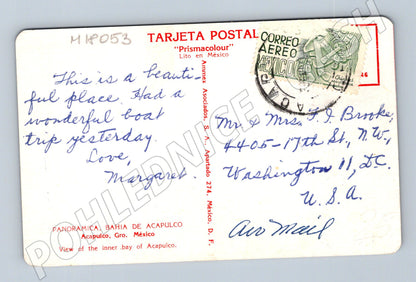 M18053
TARJETA POSTAL
"Prismacolour"
Lito en México
CORREO
AEREO
ACAP
This is a beauti-
ful place. Had a
wonderful boat
trip yesterday.
Love,
Margaret.
Ammex Asociados, S. A., Apartado 274, México, D. F.
Mr. & Mrs. F. J. Brooke,
4405-17th St., N.W.,
Washington 11, D.C.
U. S. A.
Air Mail
PANORAMICA, BAHIA DE ACAPULCO
Acapulco, Gro. México
View of the inner bay of Acapulco.
POHLEDNICE